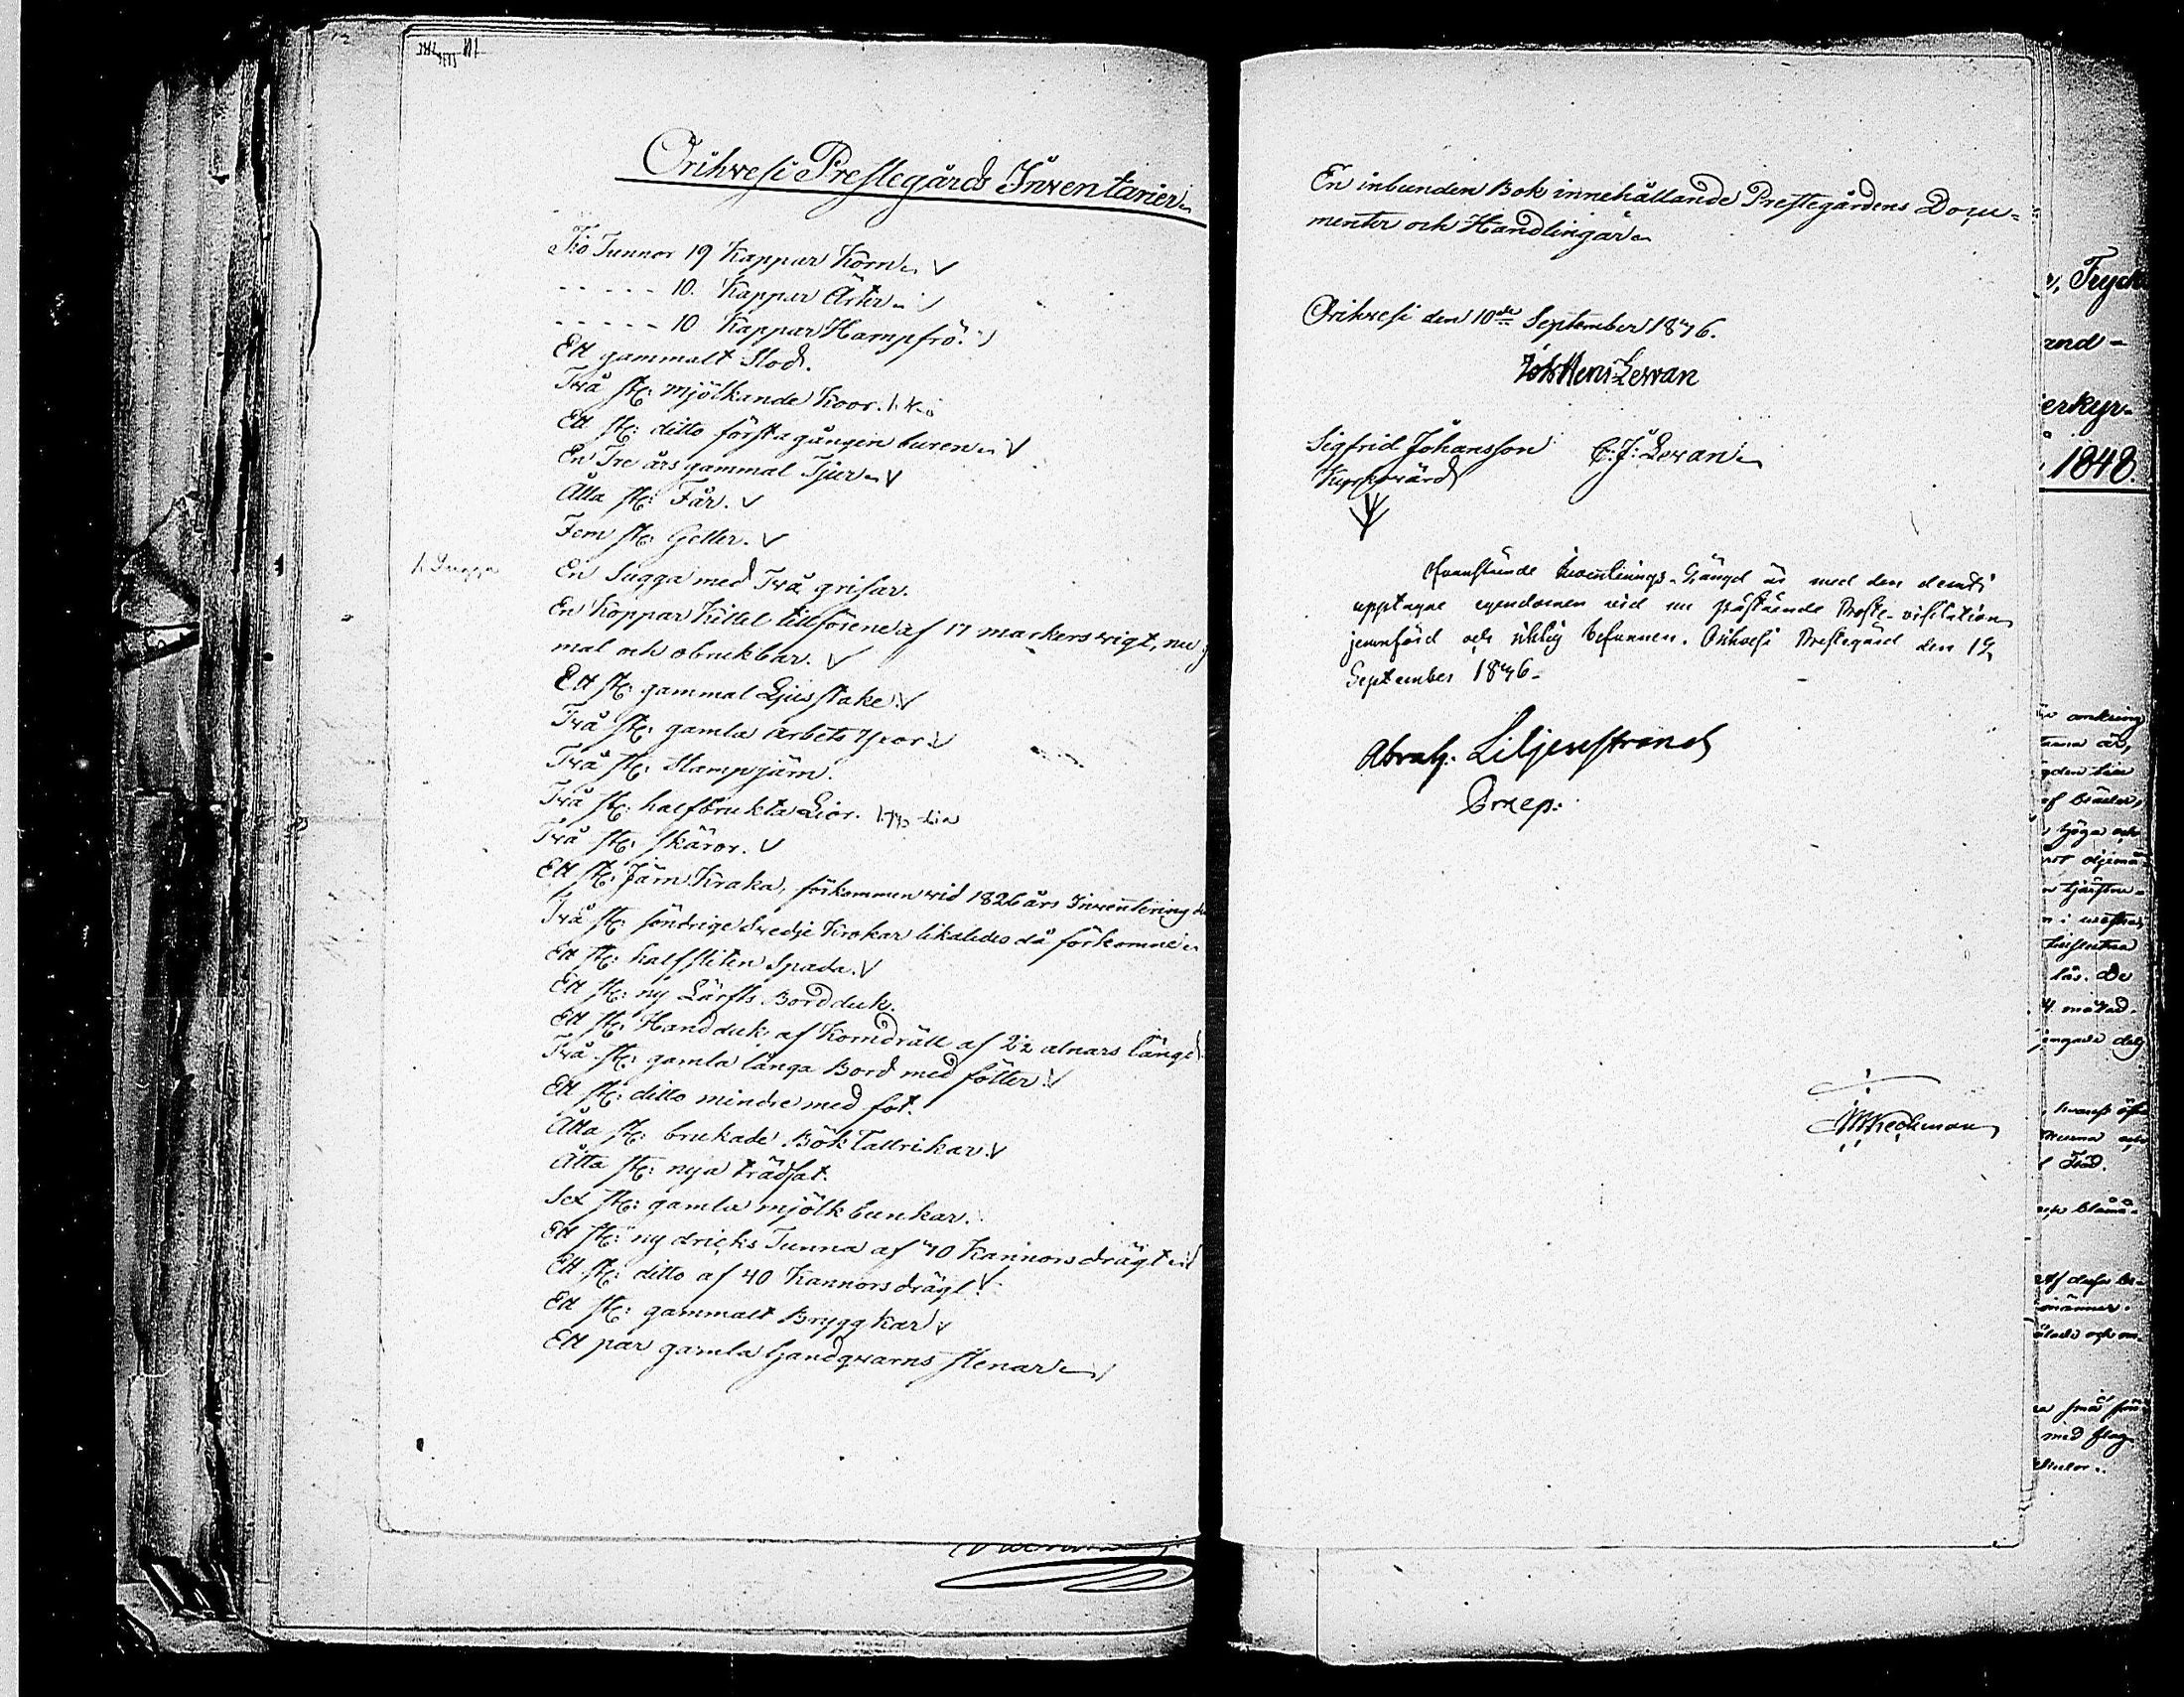 Orihvesi Prestegårds Inventarier
Tio Tunnor 19 Kappar Korn
- - - - - 10. Kappar Ärter
- - - - - 10 Kappar Hampfrö.
Ett gammalt Stod.
Två st: mjölkande Koor.
Ett st: ditto första gången buren
En Tre års gammal Tjur
Åtta st: Får.
Fem st: Getter.
1. Sugga
En Sugga med Två grisar.
En Koppar Kittel tillförene af 17 markers vigt, nu
mal och obrukbar.
Ett st: gammal Ljusstake
Två st: gamla Arbets Yxor
Två st: Stampjärn.
Två st: halfbrukta Lior.
Två st: skäror.
Ett st: Järn Kraka, förkommen vid 1826 års Inventering
Två st: söndrige Svedje Krokar likaledes då förkomne
Ett st: halfsliten Spada.
Ett st: ny Lärfts Bordduk.
Ett st: Handduk af Korndräll af 2½ alnars längd
Två st: gamla långa Bord med fötter
Ett st: ditto mindre med fot.
Åtta st: brukade Bök Tallrikar
Åtta st: nya trädfat.
Sex st: gamla mjölkbunkar.
Ett st: ny dricks Tunna af 70 Kannors drägt
Ett st: ditto af 40 Kannors drägt
Ett st: gammalt Bryggkar
Ett par gamla handqvarns stenar
En inbunden Bok innehållande Prestegårdens Docu=
menter och Handlingar
Orihvesi den 10de September 1846.
Joh Henr Levan
Sigfrid Johansson C: J: Levan
Kyrkovärd
Ofvanstående Inventerings-Längd är med den deruti
upptagne egendomen vid nu påstående Prosts-visitation
jemnförd och riktig befunnen. Orihvesi Prestegård den 12
September 1846.
Abrah. Liljenstrand
Praep:
r, Tryck
and-
erkyr-
1848.